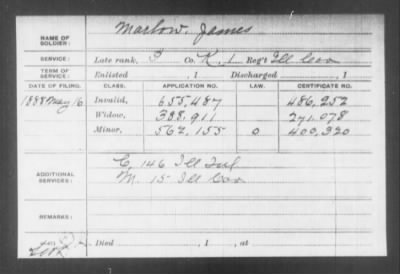 NAME OF SOLDIER: Marlow, James
SERVICE: Late rank, P Co. K, 1 Reg't Ill Cav
TERM OF SERVICE: Enlisted , 1 Discharged , 1
DATE OF FILING. CLASS. APPLICATION NO. LAW. CERTIFICATE NO.
1888 May 16 Invalid, 655,487 486,252
Widow, 388,911 271,078
Minor, 562,155 0 400,320
ADDITIONAL SERVICES: C, 146 Ill Inf
M. 15 Ill Cav
REMARKS:
Died , 1 , at